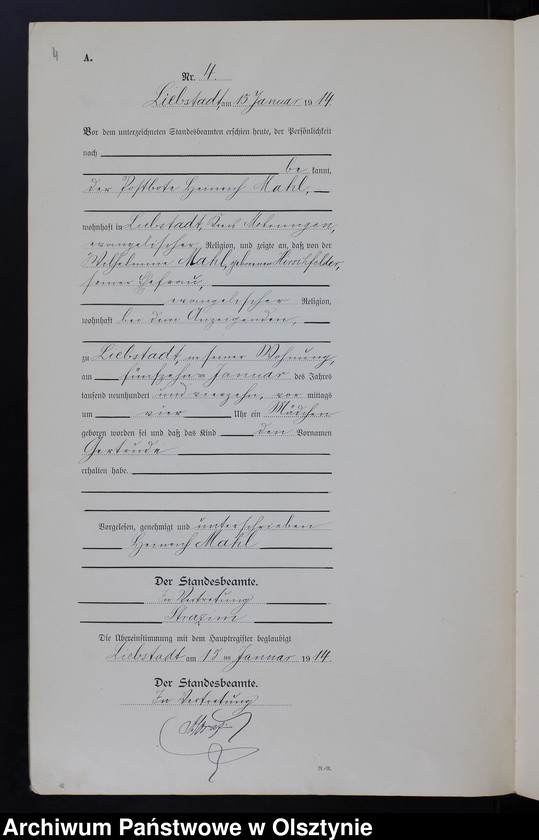 4
A.
Nr. 4.
Liebstadt, am 15 Januar 1914
Vor dem unterzeichneten Standesbeamten erschien heute, der Persönlichkeit
nach
be kannt,
der Postbote Heinrich Mahl,
wohnhaft in Liebstadt, Kreis Mohrungen,
evangelischer Religion, und zeigte an, daß von der
Wilhelmine Mahl, geborenen Herrschfelder,
seiner Ehefrau,
evangelischer Religion,
wohnhaft bei dem Anzeigenden,
zu Liebstadt, in seiner Wohnung,
am fünfzehn Januar des Jahres
tausend neunhundert und vierzehn, vor mittags
um vier Uhr ein Mädchen
geboren worden sei und daß das Kind den Vornamen
Gertrude
erhalten habe.
Vorgelesen, genehmigt und unterschrieben
Heinrich Mahl
Der Standesbeamte.
In Vertretung
Die Übereinstimmung mit dem Hauptregister beglaubigt
Liebstadt am 15 ten Januar 1914.
Der Standesbeamte.
In Vertretung
Archiwum Państwowe w Olsztynie